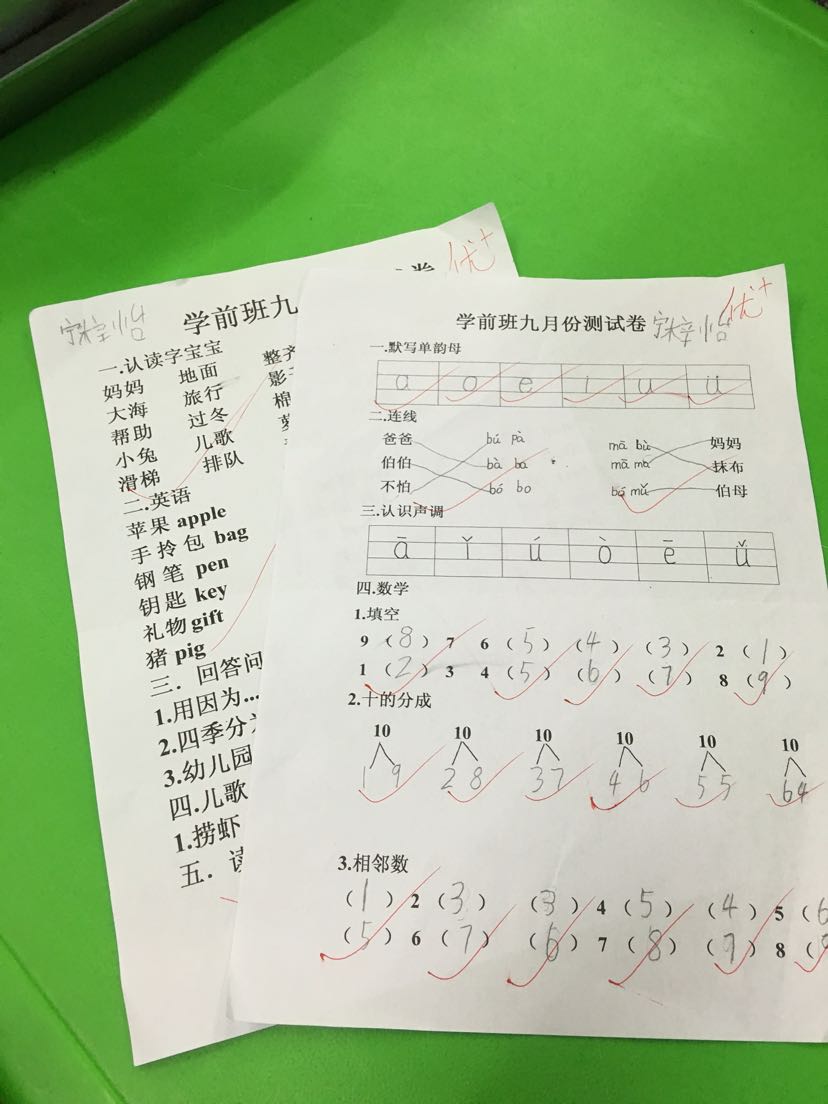 学前班九
优+
一.认读字宝宝
妈妈 地面 整齐
大海 旅行 影
帮助 过冬 棉
小兔 儿歌
滑梯 排队
二.英语
苹果 apple
手拎包 bag
钢笔 pen
钥匙 key
礼物 gift
猪 pig
三.回答问
1.用因为...
2.四季分
3.幼儿园
四.儿歌
1.捞虾
五.读
学前班九月份测试卷
优+
一.默写单韵母
a o e i u ü
二.连线
爸爸 bú pà mā bù 妈妈
伯伯 bà ba mā ma 抹布
不怕 bó bo bó mǔ 伯母
三.认识声调
ā ǐ ú ò ē ǚ
四.数学
1.填空
9 (8) 7 6 (5) (4) (3) 2 (1)
1 (2) 3 4 (5) (6) (7) 8 (9)
2.十的分成
10 10 10 10 10 10
1 9 2 8 3 7 4 6 5 5 6 4
3.相邻数
(1) 2 (3) (3) 4 (5) (4) 5 (6
(5) 6 (7) (6) 7 (8) (7) 8 (9